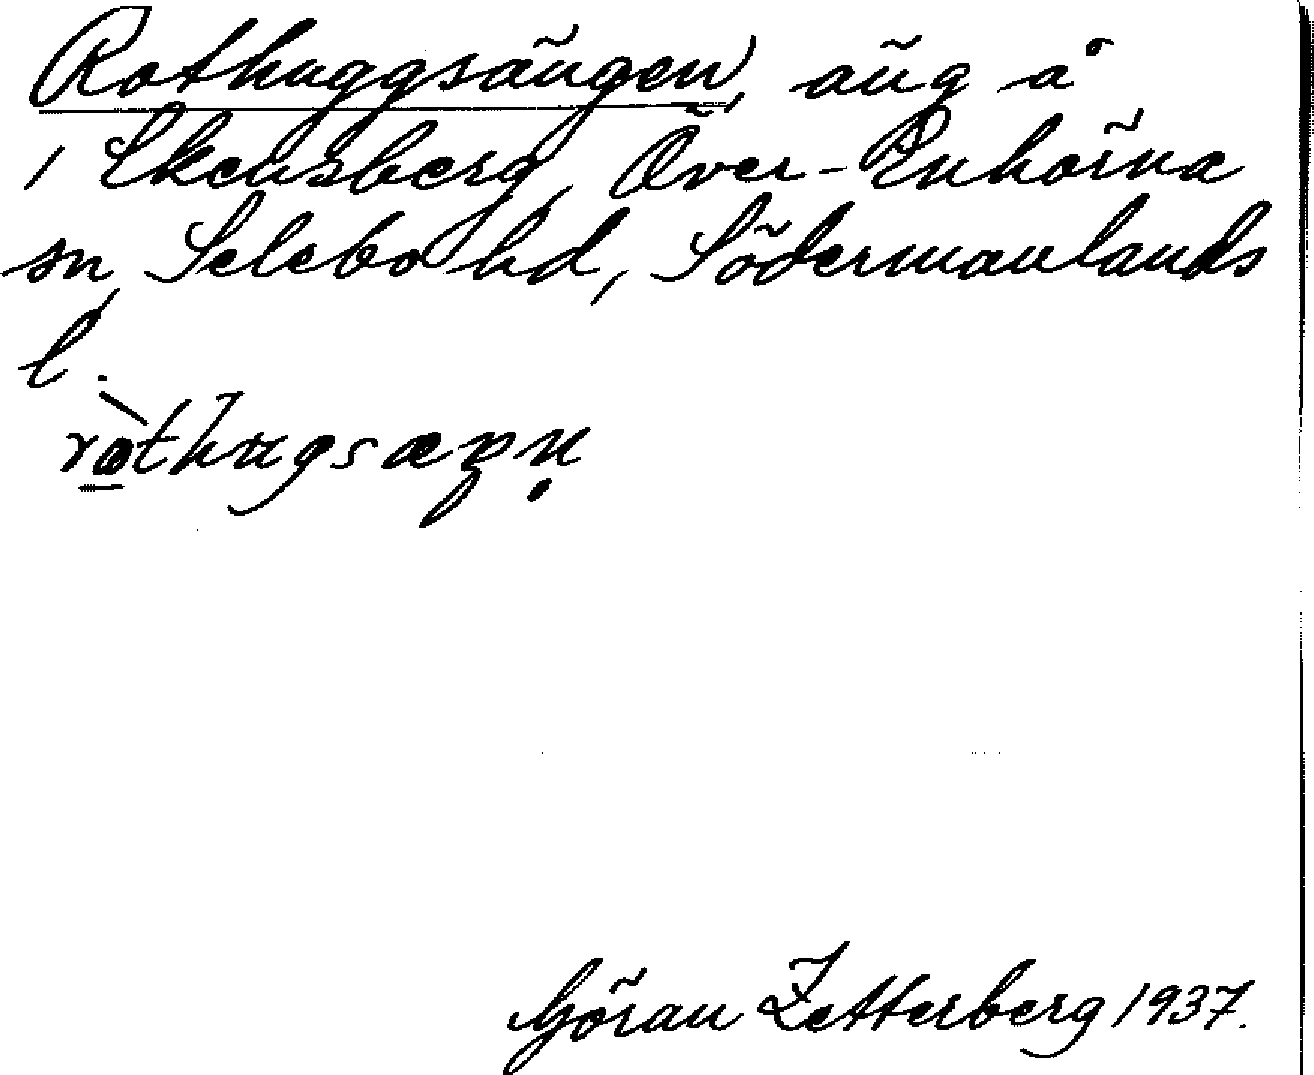 Rothuggsängen, äng å
i Ekensberg, Över-Enhörna
sn, Selebo hd, Södermanlands
l.
Göran Zetterberg 1937.